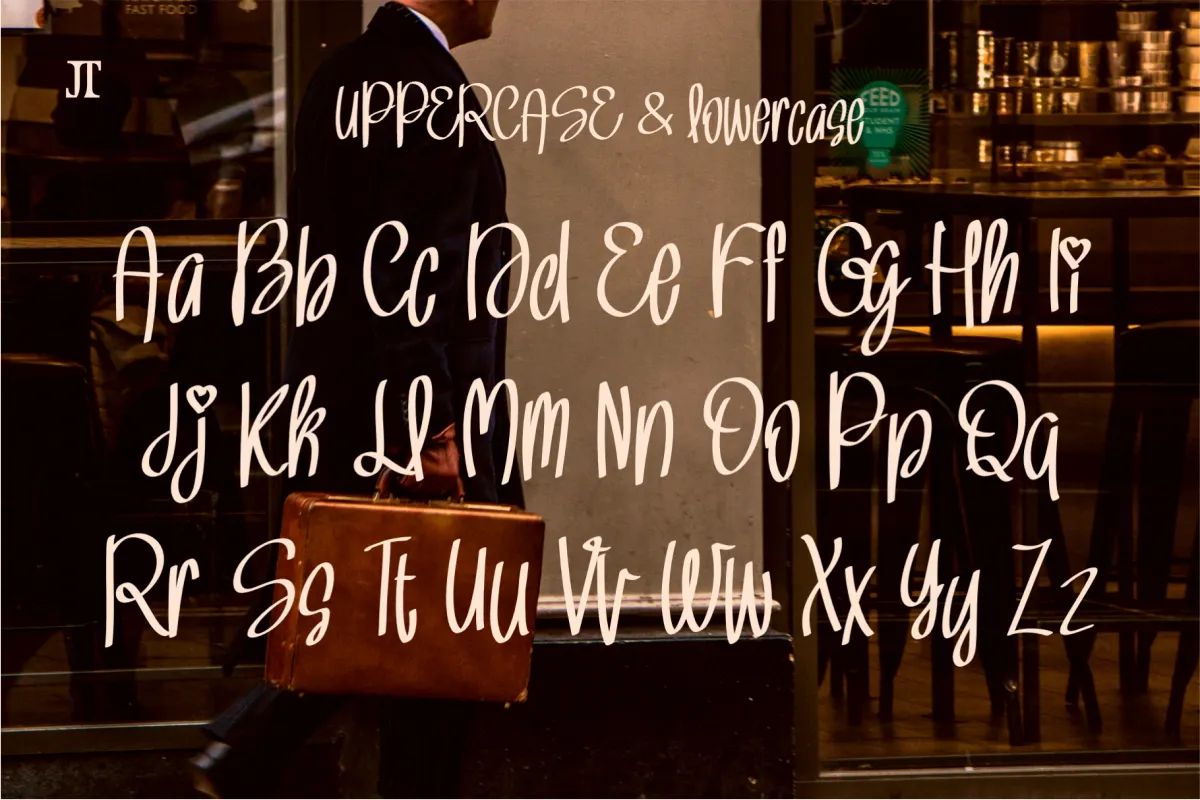 FAST FOOD
JT
UPPERCASE & lowercase
FEED
STUDENT
& NHS
Aa Bb Cc Dd Ee Ff Gg Hh Ii
Jj Kk Ll Mm Nn Oo Pp Qq
Rr Ss Tt Uu Vv Ww Xx Yy Zz